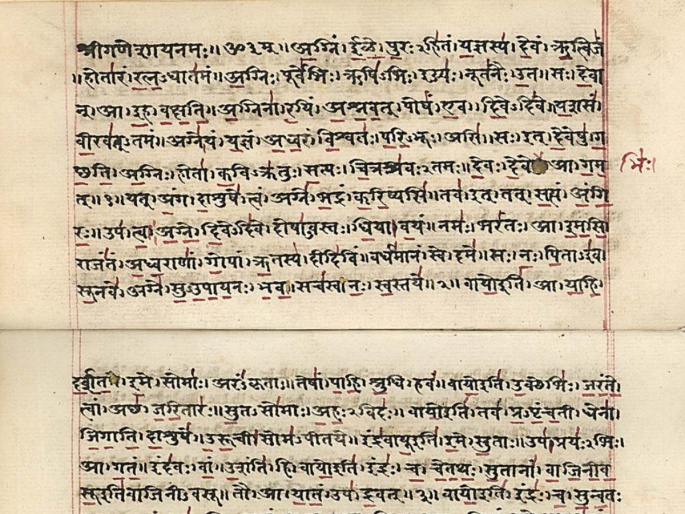 श्रीगणेशायनमः॥ ॐ३म्॥ अग्निं। ईळे। पुरःऽहितं। यज्ञस्य। देवं। ऋत्विजं
॥होतारं। रत्नऽधातमं॥ अग्निः। पूर्वेभिः। ऋषिऽभिः। ईड्यः। नूतनैः। उत॥ सः। देवा
न्। आ। इह। वक्षति॥ अग्निना। रयिं। अश्नवत्। पोषं। एव। दिवेऽदिवे॥ यशसं
वीरवत्ऽतमं॥ अग्ने। यं। यज्ञं। अध्वरं। विश्वतः। परिऽभूः। असि॥ सः। इत्। देवेषु। ग
च्छति॥ अग्निः। होता। कविऽक्रतुः। सत्यः। चित्रश्रवःऽतमः॥ देवः। देवे आ। गम भिः।
त्॥१॥ यत्। अंग। दाशुषे। त्वं। अग्ने। भद्रं। करिष्यसि॥ तव। इत्। तत्। सत्यं। अंगि
रः॥ उप। त्वा। अग्ने। दिवेऽदिवे। दोषाऽवस्तः। धिया। वयं॥ नमः। भरंतः। आ। इमसि॥
राजंतं। अध्वराणां। गोपां। ऋतस्य। दीदिविं॥ वर्धमानं। स्वे। दमे॥ सः। नः। पिताऽइव
सूनवे। अग्ने। सुऽउपायनः। भव॥ सचस्व। नः। स्वस्तये॥२॥ वायो इति। आ। याहि।
दर्शत। इमे। सोमाः। अरंऽकृताः॥ तेषां। पाहि। श्रुधि। हवं॥ वायो इति। उक्थेभिः। जरंते।
त्वां। अच्छ। जरितारः॥ सुतऽसोमाः। अहःऽविदः॥ वायो इति। तव। प्रऽपृंचती। धेना।
जिगाति। दाशुषे॥ उरूची। सोमऽपीतये॥ इंद्रवायू इति। इमे। सुताः॥ उप। प्रयःऽभिः।
आ। गतं॥ इंदवः। वां। उशंति। हि॥ वायो इति। इंद्रः। च। चेतथः। सुतानां। वाजिनीव
सू इति वाजिनीऽवसू॥ तौ। आ। यातं। उप। द्रवत्॥३॥ वायो इति। इंद्रः। च। सुन्वतः